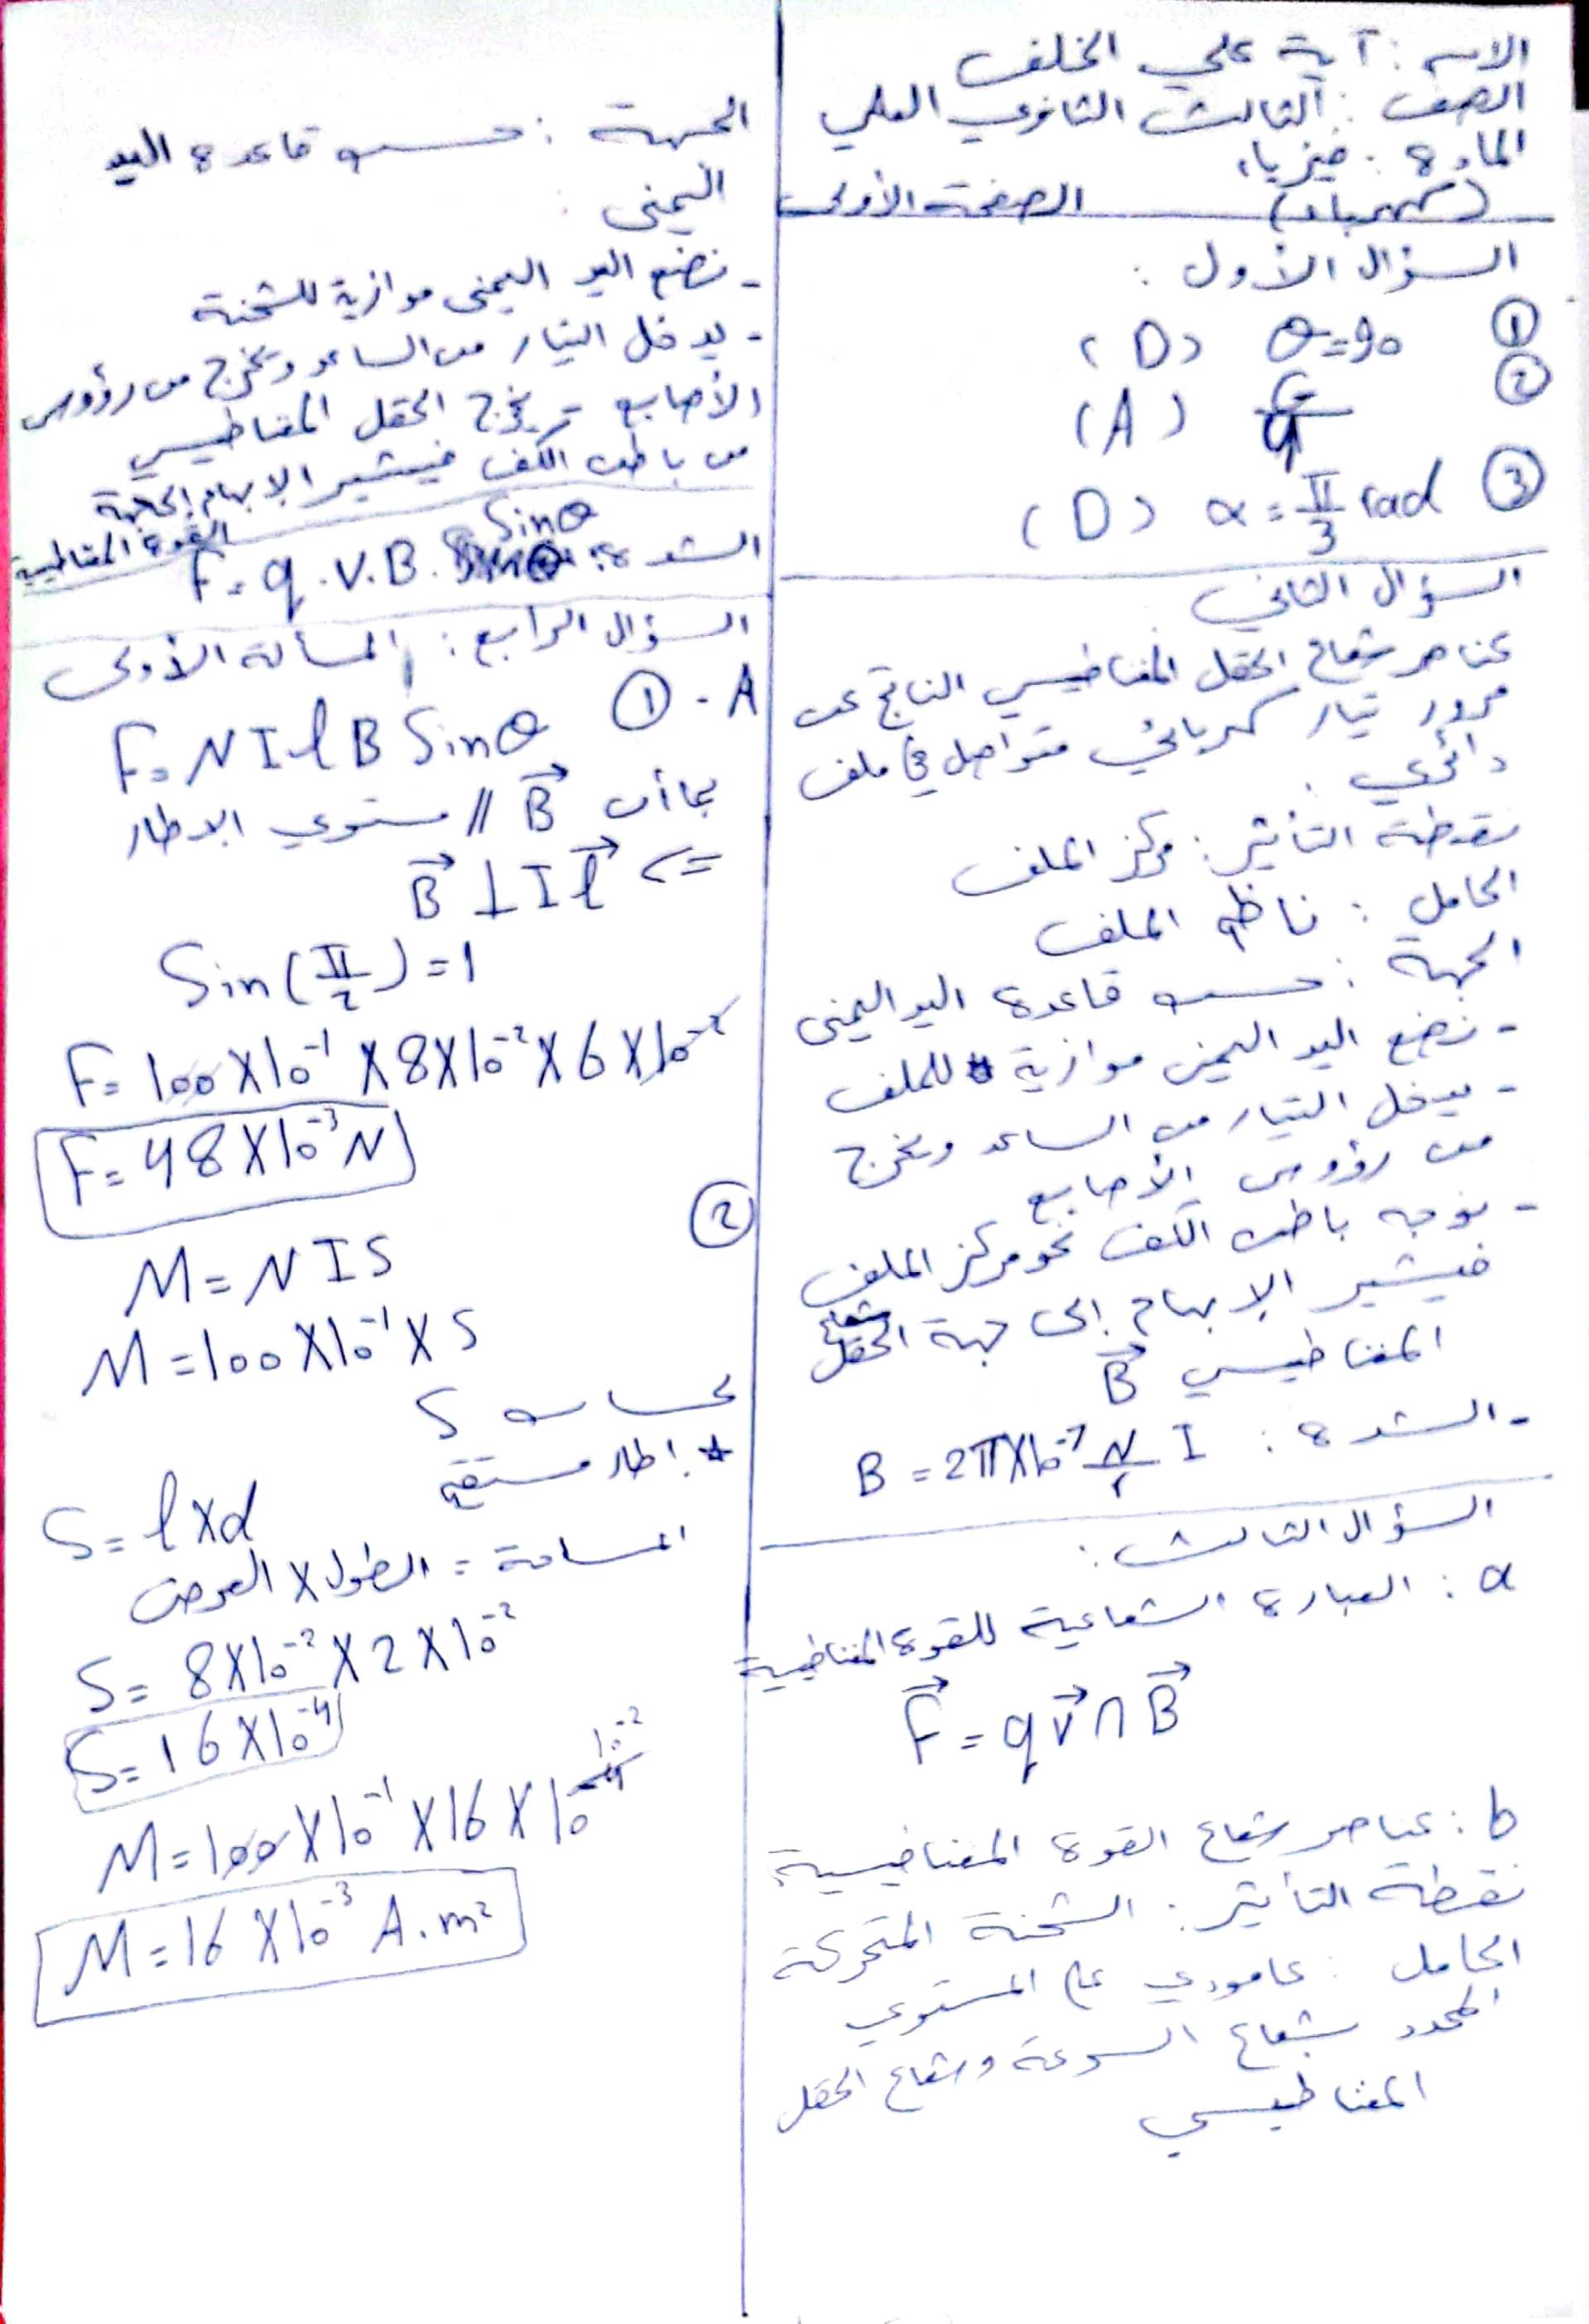 الاسم : آية علي الخلف
الصف : الثالث الثانوي العلمي
المادة : فيزياء
(كهرباء) الصفحة الأولى
السؤال الأول :
① θ=90 (D)
② (A)
③ α = π/3 rad (D)
السؤال الثاني
عناصر شعاع الحقل المغناطيسي الناتج عن
مرور تيار كهربائي متواصل في ملف
دائري :
نقطة التأثير : مركز الملف
الحامل : ناظم الملف
الجهة : حسب قاعدة اليد اليمنى
- نضع اليد اليمنى موازية للملف
- يدخل التيار من الساعد ويخرج
من رؤوس الأصابع
- نوجه باطن الكف نحو مركز الملف
فيشير الإبهام إلى جهة شعاع الحقل
المغناطيسي B⃗
- الشدة : B = 2π×10⁻⁷ N/r I
السؤال الثالث :
a : العبارة الشعاعية للقوة المغناطيسية
F⃗ = qv⃗ ∩ B⃗
b : عناصر شعاع القوة المغناطيسية
نقطة التأثير : الشحنة المتحركة
الحامل : عامودي على المستوي
المحدد بشعاع السرعة وشعاع الحقل
المغناطيسي
الجهة : حسب قاعدة اليد
اليمنى :
- نضع اليد اليمنى موازية للشحنة
- يدخل التيار من الساعد ويخرج من رؤوس
الأصابع - يخرج الحقل المغناطيسي
من باطن الكف فيشير الإبهام إلى جهة
القوة المغناطيسية
الشدة : F = q . v . B . Sinθ
السؤال الرابع : المسألة الأولى
A - ①
F = N I l B Sinθ
بما أن B⃗ // مستوي الاطار
=> B⃗ ⊥ I l⃗
Sin(π/2) = 1
F = 100×10⁻¹ × 8×10⁻² × 6×10⁻²
F = 48×10⁻³ N
②
M = N I S
M = 100×10⁻¹ × S
حساب S
* اطار مستقيم
S = l×d
المساحة = الطول × العرض
S = 8×10⁻² × 2×10⁻²
S = 16×10⁻⁴
M = 100×10⁻¹ × 16×10
M = 16×10⁻³ A.m²